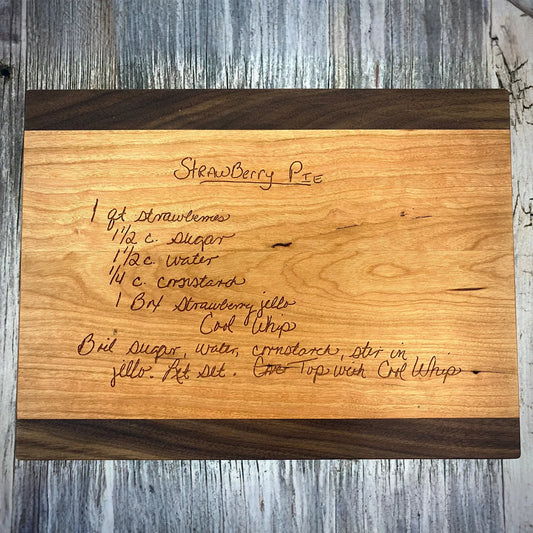 StrawBerry Pie
1 qt strawberries
1 1/2 c. sugar
1 1/2 c. water
1/4 c. cornstarch
1 Box strawberry jello
Cool Whip
Boil sugar, water, cornstarch, ster in
jello. Let set. Top with Cool Whip